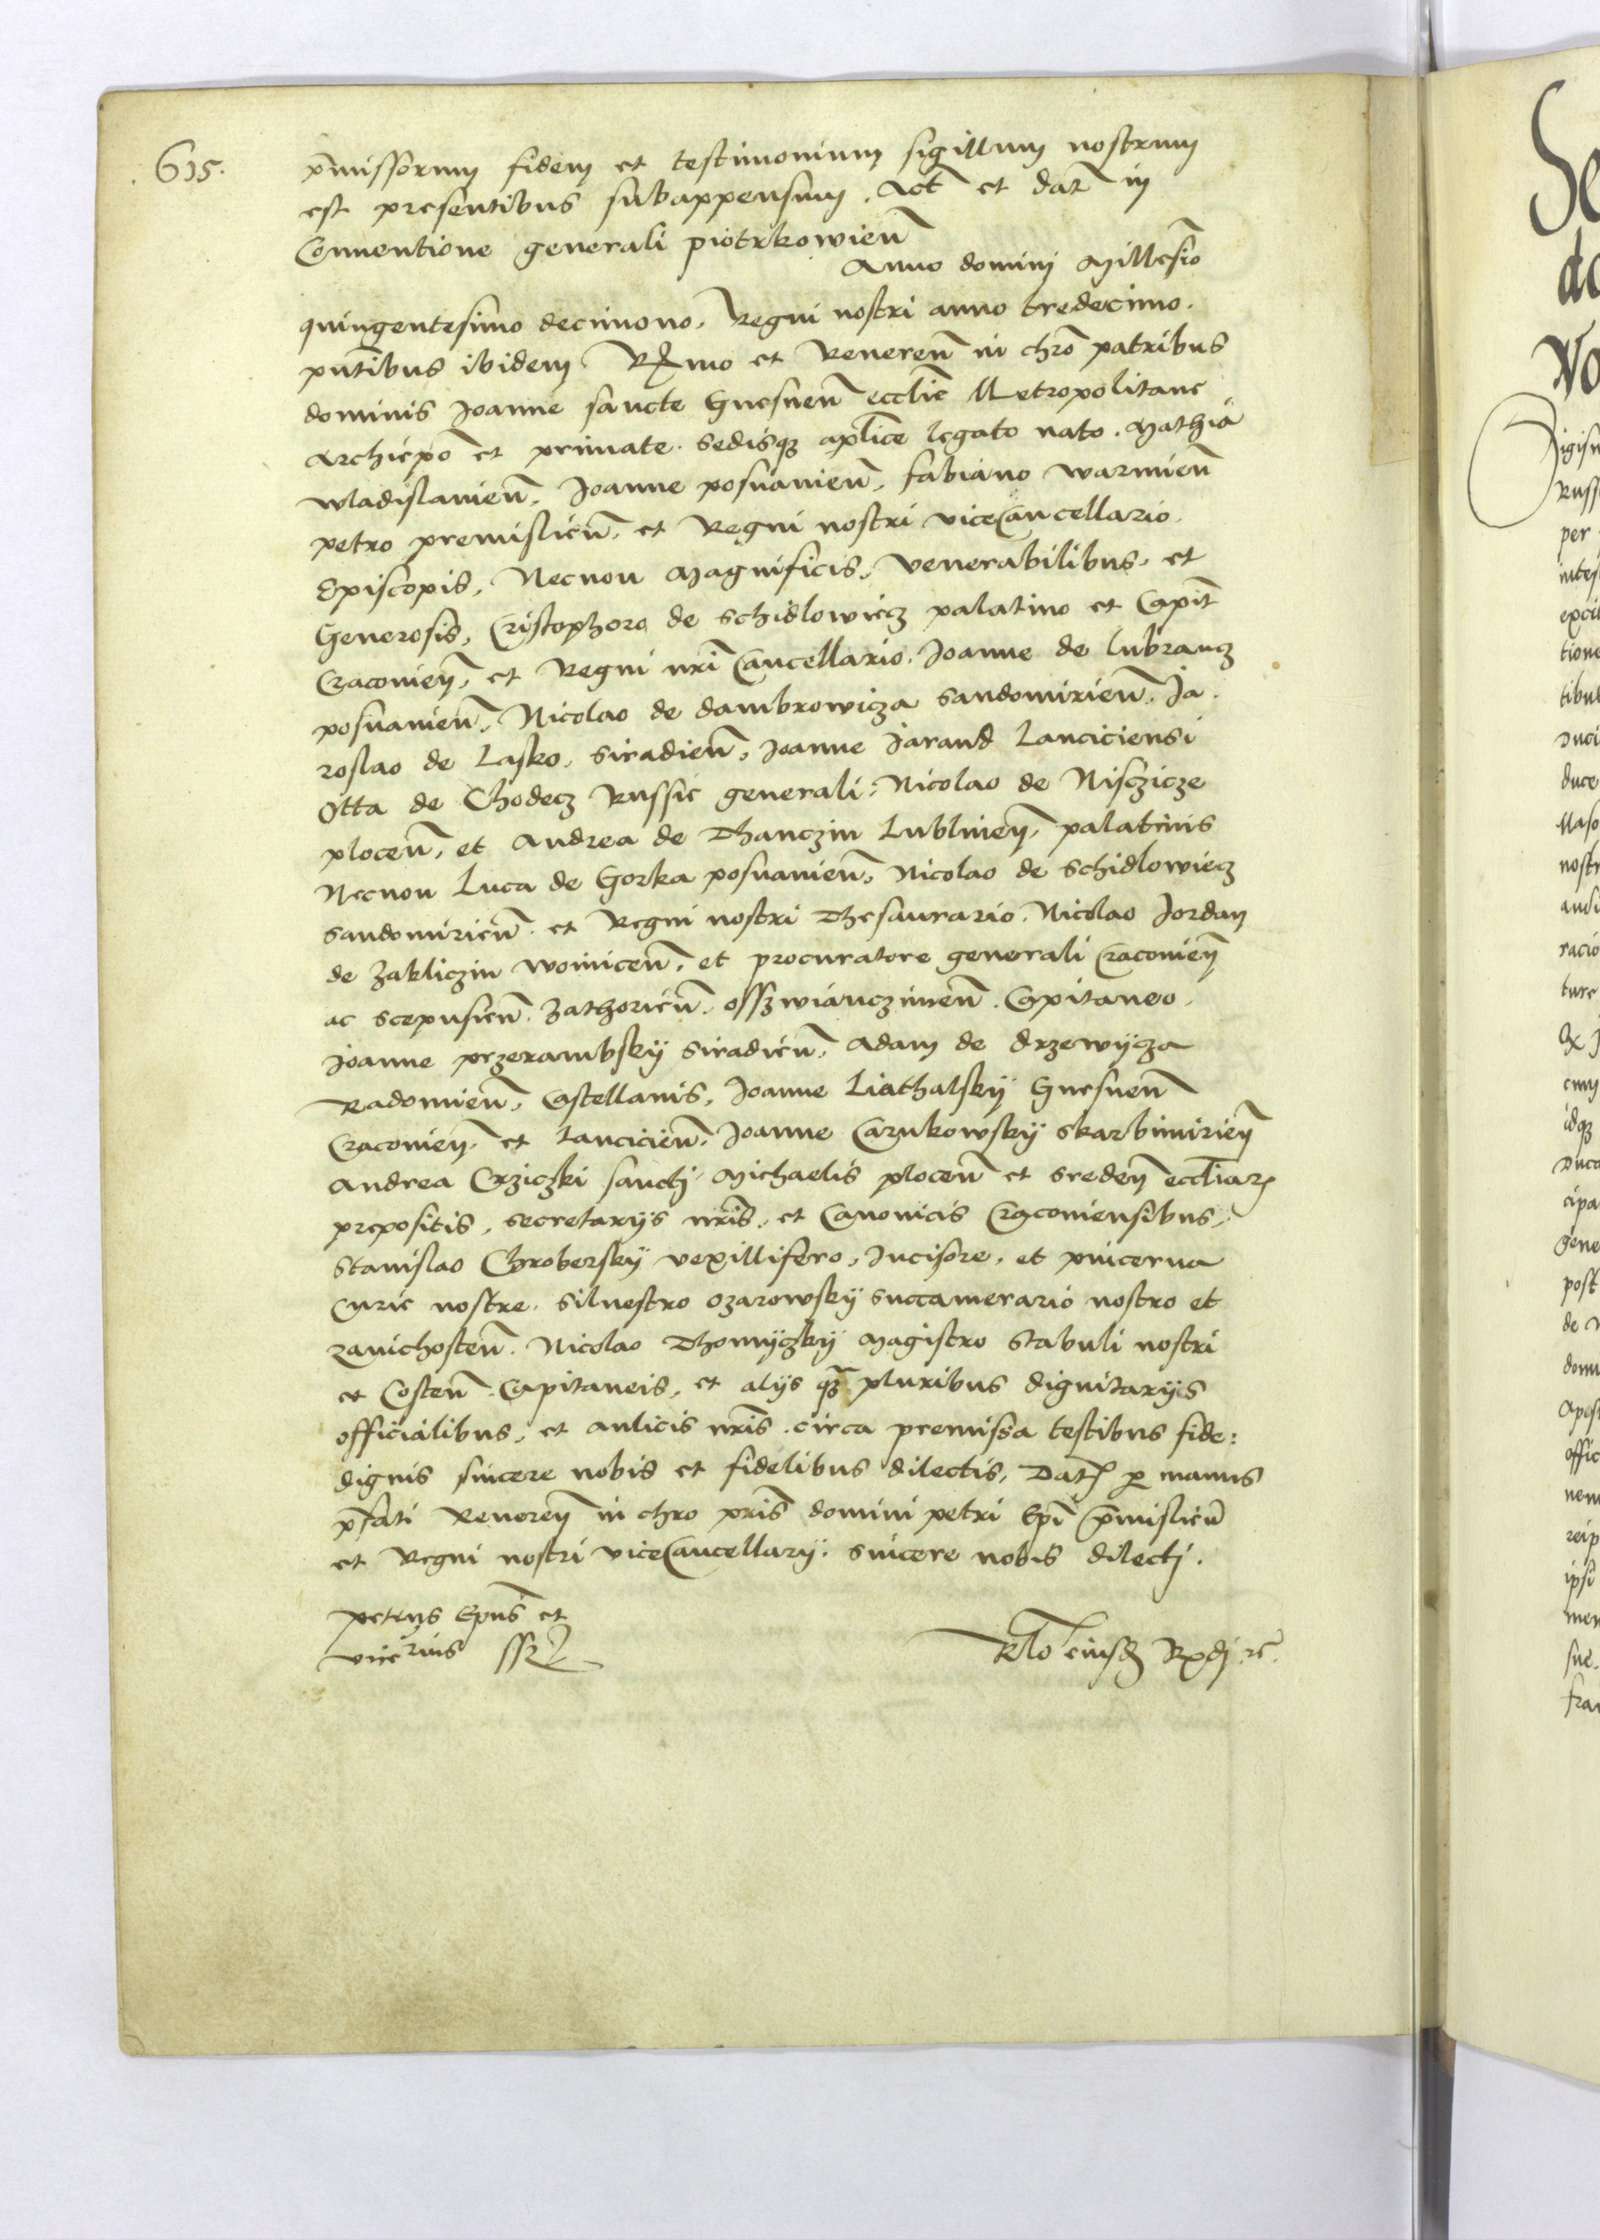 615.
p̄missorum fidem et testimonium sigillum nostrum
est presentibus subappensum. Act̄ et dat̄ in
Conuentione generali piotrkowien̄
Anno domini Millesīo
quingentesimo decimono, Regni nostri anno tredecimo.
pn̄tibus ibidem R̄mo et Reueren̄ in chrō patribus
dominis Joanne sancte Gnesnen̄ eccl̄ie Metropolitane
Archiep̄o et primate. sedisq3 apl̄ice legato nato. Mathia
wladislauien̄, Joanne posnanien̄, fabiano warmien̄
petro premislien̄, et Regni nostri viceCancellario.
Episcopis, Necnon Magnificis, venerabilibus, et
Generosis, Cristophoro de Schidlowiecz palatino et Capit̄
Cracouien̄, et Regni nr̄i Cancellario. Joanne de lubrancz
posnanien̄, Nicolao de dambrowicza sandomirien̄, Ja-
roslao de Lasko, siradien̄, Joanne Jarand Lanciciensi
Otta de Chodecz Russie generali, Nicolao de Nisczicze
plocen̄, et Andrea de Thanczin Lublinen̄, palatinis
Necnon Luca de Gorka posnanien̄, Nicolao de Schidlowiecz
sandomirien̄. et Regni nostri Thesaurario. Nicolao Jordan
de Zakliczin woinicen̄, et procuratore generali Cracouien̄
ac scepusien̄. Zathorien̄. osszwianczimen̄. Capitaneo.
Joanne przerambskÿ siradien̄, Adam de drzewÿcza
Radomien̄, Castellanis, Joanne LiathalskÿGnesnen̄
Cracouien̄. et Lancicien̄, Joanne Carnkowskÿ skarbimirien̄
Andrea Crziczki sancti Michaelis plocen̄ et sreden̄ eccl̄iar̄
prepositis, secretarÿs nr̄is, et Canonicis Cracouiensibus,
Stanislao Chroberskÿ vexillifero, Incisore, et pincerna
Curie nostre. Siluestro ozarowskÿ succamerario nostro et
zauichosten̄. Nicolao Thomÿczkÿ Magistro stabuli nostri
et Costen̄. Capitaneis, et alÿs q3̄ pluribus dignitarÿs
officialibus, et aulicis nr̄is. circa premissa testibus fide:
dignis sincere nobis et fidelibus dilectis, Dat̄ p̱ manus
p̄fati Reueren̄ in chro pr̄is domini petri Ep̄i p̄mislien̄
et Regni nostri viceCancellarÿ. sincere nobis dilecti.
petrus Ep̄us et